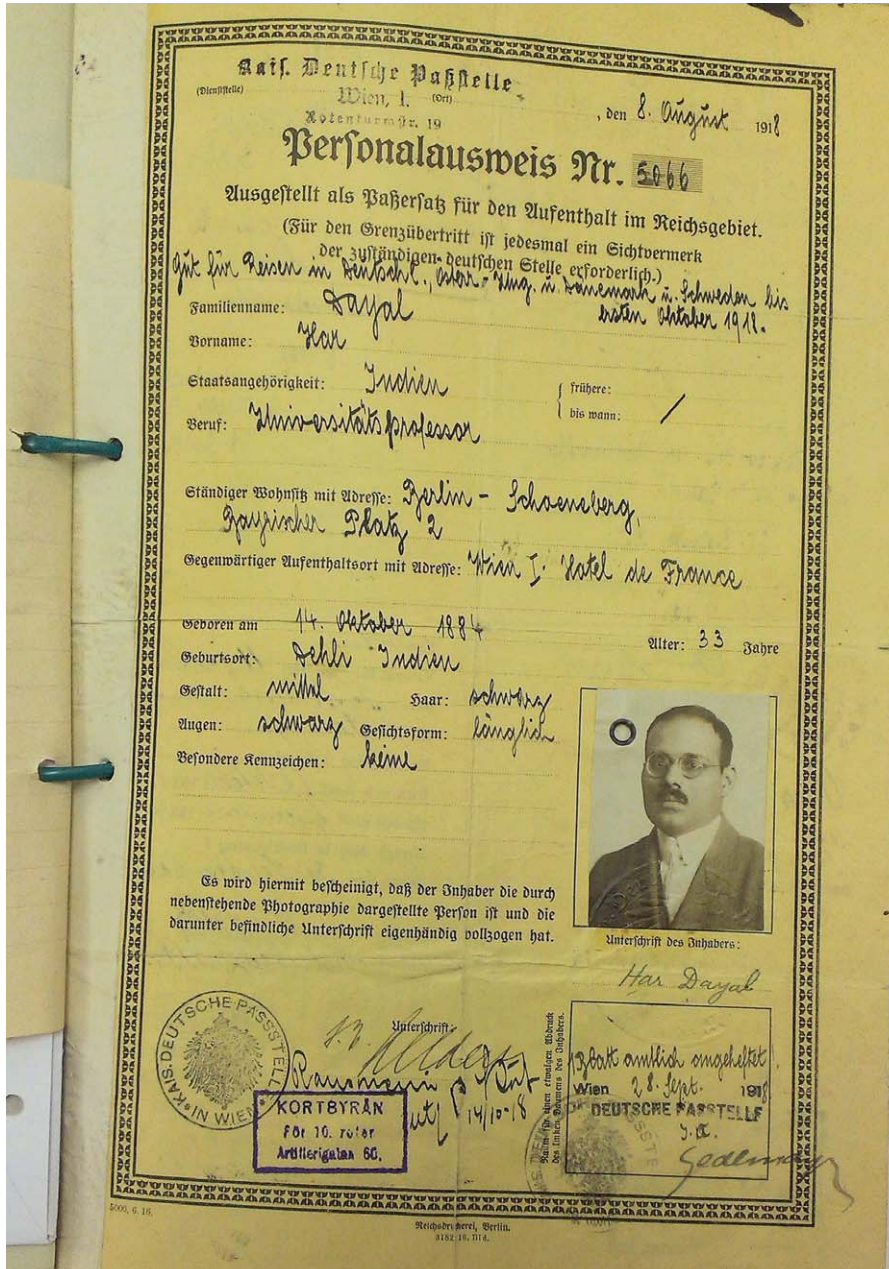 Kais. Deutsche Paßstelle
(Dienststelle) Wien, I. (Ort) , den 8. August 1918
Rotenturmstr. 19
Personalausweis Nr. 5066
Ausgestellt als Paßersatz für den Aufenthalt im Reichsgebiet.
(Für den Grenzübertritt ist jedesmal ein Sichtvermerk
der zuständigen deutschen Stelle erforderlich.)
Gut für Reisen in Deutschl., Österr.-Ung. u. Dänemark u. Schweden bis
ersten Oktober 1918.
Familienname: Dayal
Vorname: Har
Staatsangehörigkeit: Indien { frühere: /
bis wann:
Beruf: Universitätsprofessor
Ständiger Wohnsitz mit Adresse: Berlin - Schoeneberg,
Bayrischer Platz 2
Gegenwärtiger Aufenthaltsort mit Adresse: Wien I. Hotel de France
Geboren am 14. Oktober 1884 Alter: 33 Jahre
Geburtsort: Dehli Indien
Gestalt: mittel Haar: schwarz
Augen: schwarz Gesichtsform: länglich
Besondere Kennzeichen: keine
Es wird hiermit bescheinigt, daß der Inhaber die durch
nebenstehende Photographie dargestellte Person ist und die
darunter befindliche Unterschrift eigenhändig vollzogen hat.
Unterschrift des Inhabers:
Har Dayal
KAIS. DEUTSCHE PASSSTELLE
IN WIEN
Unterschrift:
14/10-18
KORTBYRÅN
För 10. roter
Artillerigatan 60.
Raum für einen etwaigen Abdruck
des linken Daumens des Inhabers.
Blatt amtlich angeheftet!
Wien 28. Sept. 1918
DEUTSCHE PASSTELLE
J. A.
5000. 6. 16.
Reichsdruckerei, Berlin.
3182 16. III d.